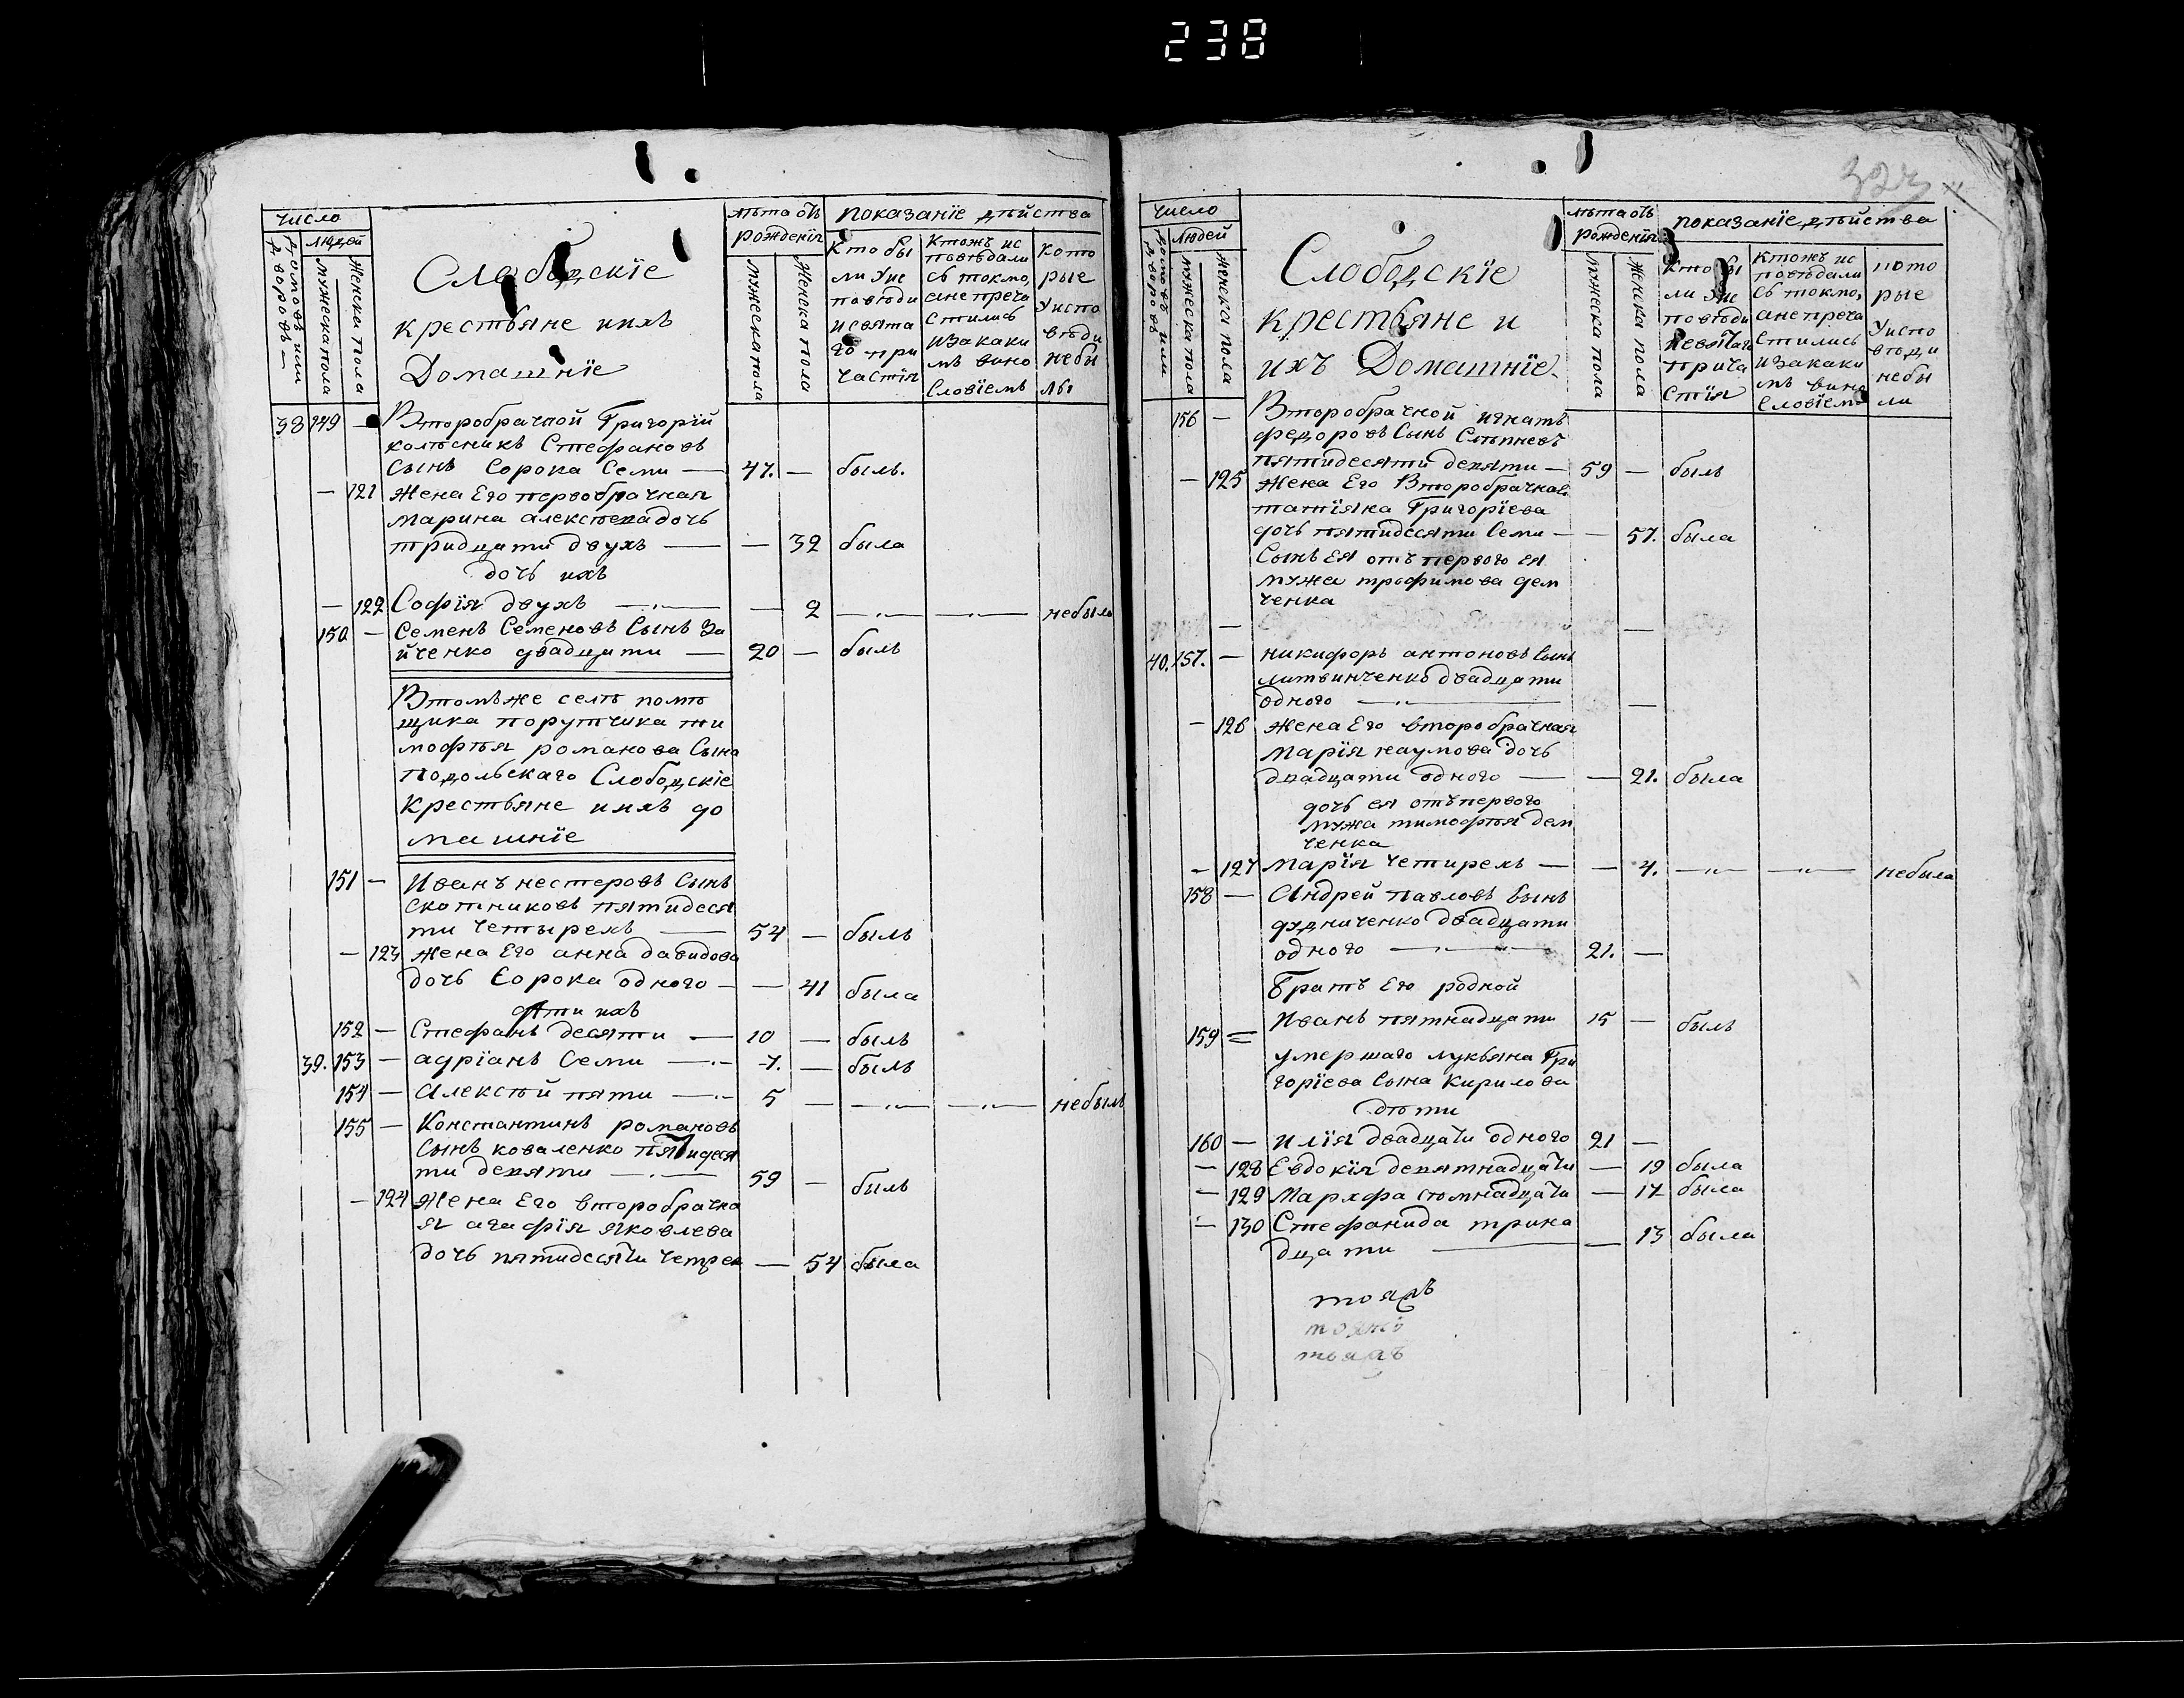 238
число
людей
домовъ или дворовъ
мужеска пола
женска пола
Слободскїе
крестьяне ихъ
Домашнїе
лѣта отъ рожденїя
мужеска пола
женска пола
показанїе дѣйства
Кто бы
ли у ис
повѣди
и свята
го при
частїя
Ктожъ ис
повѣдали
сь токмо,
а не прича
стились
и за каки
мъ вино
словїемъ
кото
рые
у испо
вѣди
небы
лы
38 149 — Второбрачной Григорїй
колѣсникъ Стефановъ
сынъ сорока семи — 47. — былъ.
— 121 жена Его первобрачная
марина алексѣева дочь
тридцати двухъ — — 32 была
дочь ихъ
— 122 Софїя двухъ — — 2 — — небыла
150 — Семенъ Семеновъ Сынъ За
йченко двадцати — 20 — былъ
Втомъже селѣ помѣ
щика порутчика ти
мофѣя романова Сына
Подольскаго Слободскїе
крестьяне ихъ до
машнїе
151 — Иванъ нестеровъ Сынъ
скотниковъ пятидеся
ти четырехъ — 54 — былъ
— 123 жена Его анна давидова
дочь Сорока одного — — 41 была
дѣти ихъ
152 — Стефанъ десяти — 10 — былъ
39. 153 — адрїанъ Семи — 7. — былъ
154 — Алексѣй пяти — 5 — — — небылъ
155 — Константинъ романовъ
Сынъ коваленко пятидеся
ти девяти — 59 — былъ
— 124 Жена Его второбрачна
я агафїя яковлева
дочь пятидесяти четрех — 54 была
323
число
людей
домовъ или дворовъ
мужеска пола
женска пола
Слободскїе
крестьяне и
ихъ Домашнїе
лѣта отъ рожденїя
мужеска пола
женска пола
показанїе дѣйства
Кто бы
ли у ис
повѣди
и святаго
прича
стїя
Ктожъ ис
повѣдали
сь токмо,
а не прича
стились
и за каки
мъ вино
словїемъ
кото
рые
у испо
вѣди
небы
ли
156 — Второбрачной игнатъ
федоровъ Сынъ
пятидесяти девяти — 59 — былъ
— 125 жена Его Второбрачная
татїяна Григорїева
дочь пятидесяти Семи — — 57. была
Сынъ Ея отъ первого ея
мужа трофимова дем
ченка
— —
40. 157. — никифоръ антоновъ Сынъ
литвинченко двадцати
одного — —
— 126 жена Его второбрачная
Марїя наумова дочь
двадцати одного — — 21. была
дочь ея отъ первого
мужа тимофѣя дем
ченка
— 127 марїя четирехъ — — 4. — — небыла
158 — Андрей павловъ Сынъ
дудниченко двадцати
одного — 21. —
Братъ Его родной
159 = Иванъ пятнадцати 15 — былъ
умершаго лукьяна Гри
горїева Сына Кирилова
дѣти
160 — илїя двадцати одного 21 —
— 128 Евдокїя девятнадцати — 19 была
— 129 Марфа стомнадцати — 17 была
— 130 Стефанида трина
дцати — — 13 была